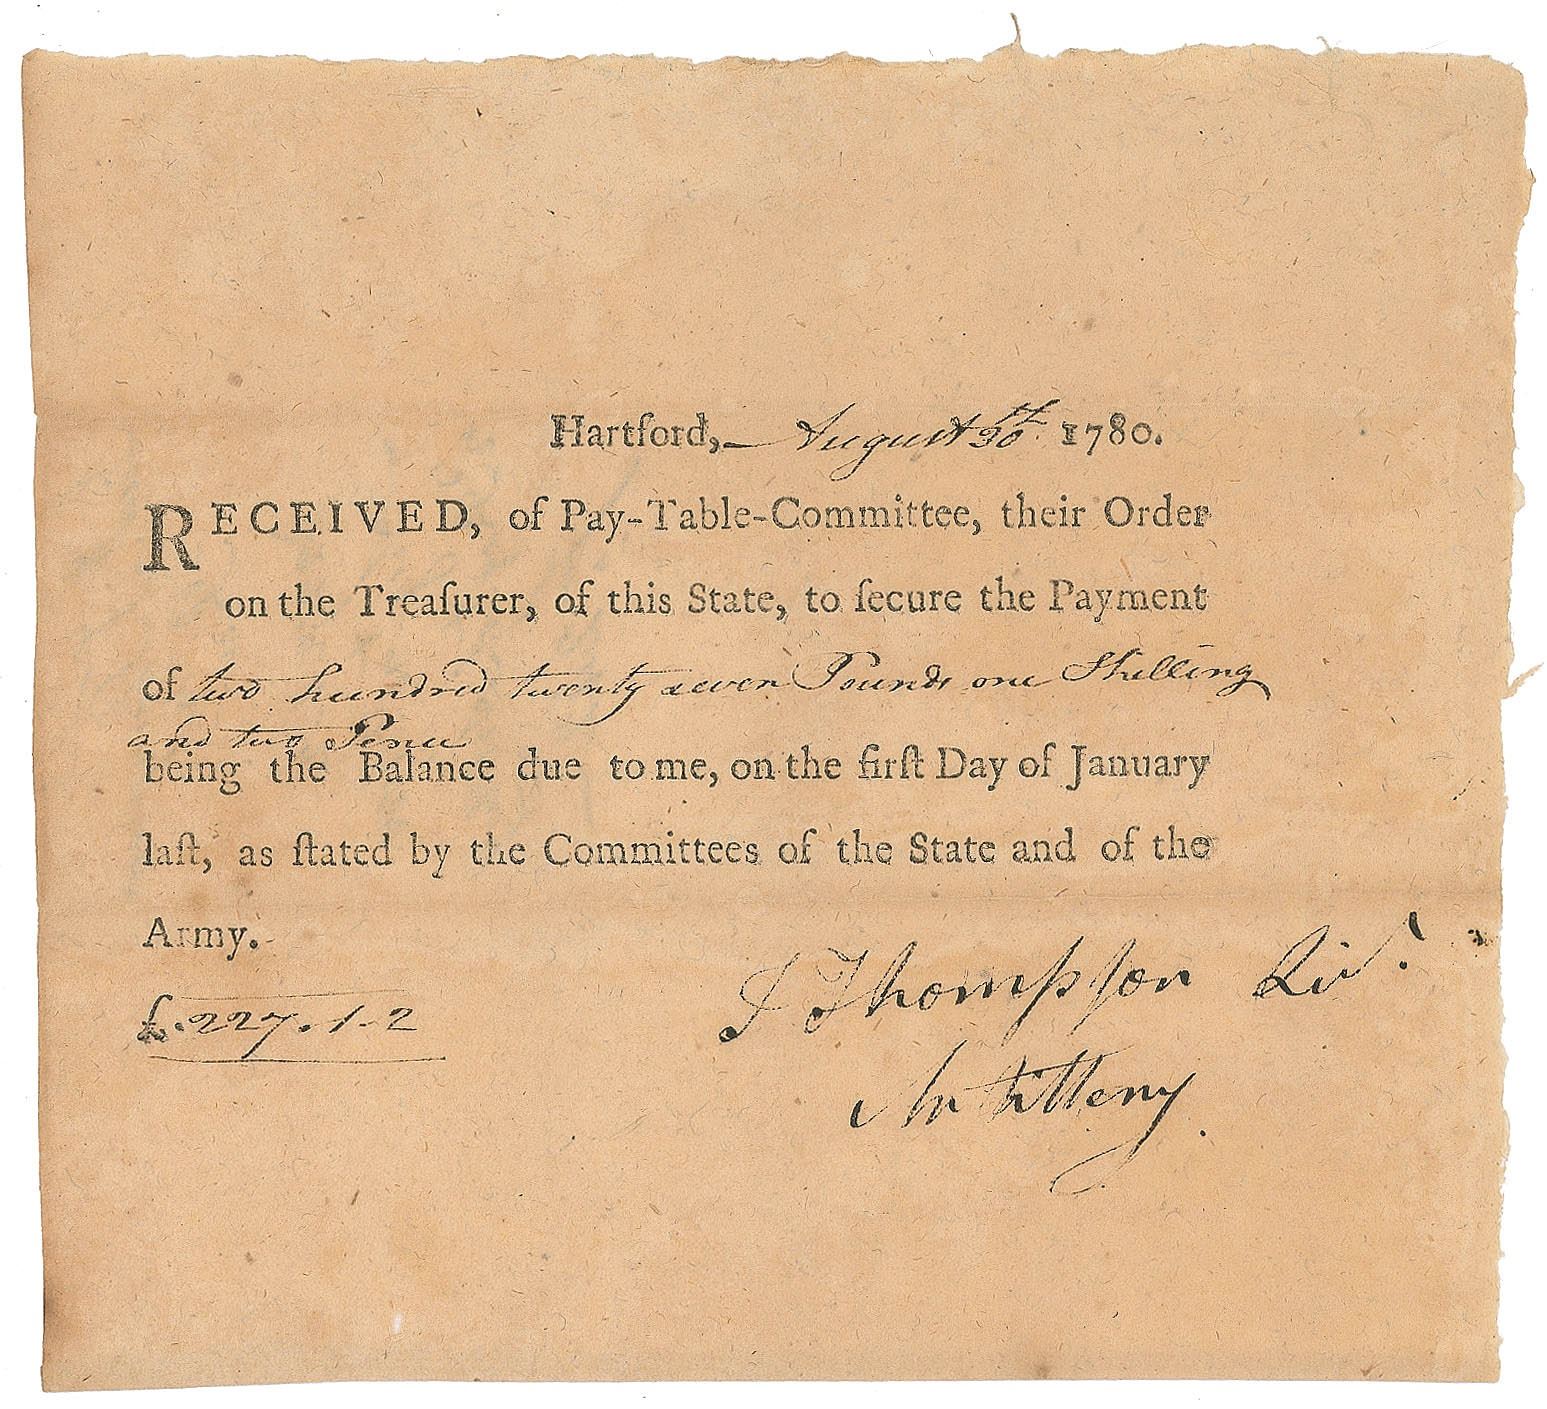 Hartford, August 30th 1780.
RECEIVED, of Pay-Table-Committee, their Order
on the Treaſurer, of this State, to ſecure the Payment
of two hundred twenty seven Pounds one Shilling
and two Pence
being the Balance due to me, on the firſt Day of January
laſt, as ſtated by the Committees of the State and of the
Army.
£.227.1-2
Thompſon